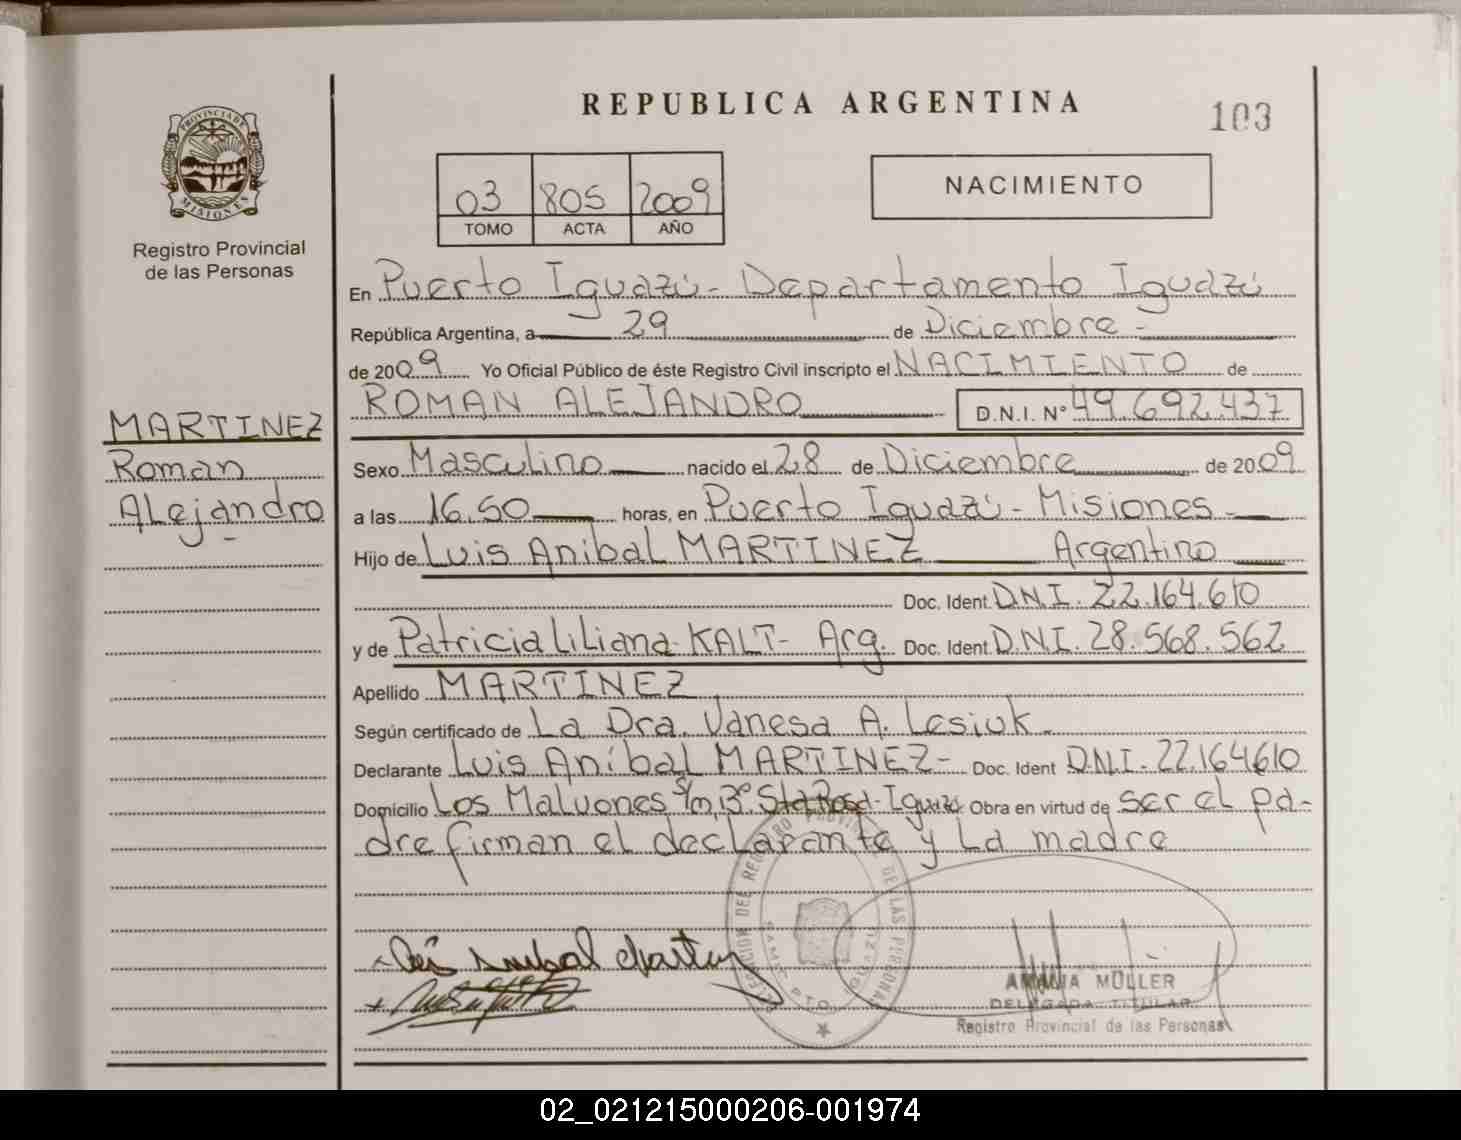 REPUBLICA ARGENTINA
103
PROVINCIA DE MISIONES
Registro Provincial
de las Personas
03 805 2009
TOMO ACTA AÑO
NACIMIENTO
En Puerto Iguazú - Departamento Iguazú
República Argentina, a 29 de Diciembre -
de 2009 Yo Oficial Público de éste Registro Civil inscripto el NACIMIENTO de
ROMAN ALEJANDRO D.N.I. N° 49.692.437
MARTINEZ
Roman
Alejandro
-
Sexo Masculino nacido el 28 de Diciembre de 2009
a las 16.50 horas, en Puerto Iguazú - Misiones -
Hijo de Luis Anibal MARTINEZ Argentino
Doc. Ident. D.N.I. 22.164.610
y de Patricia Liliana KALT - Arg. Doc. Ident. D.N.I. 28.568.562
Apellido MARTINEZ
Según certificado de La Dra. Vanesa A. Lesiuk.
Declarante Luis Aníbal MARTINEZ - Doc. Ident D.N.I. 22.164610
Domicilio Los Malvones S/n, B° Sta Rosa - Iguazú Obra en virtud de ser el pa-
dre firman el declarante y La madre
AMALIA MÜLLER
DELEGADA TITULAR
Registro Provincial de las Personas
02_021215000206-001974